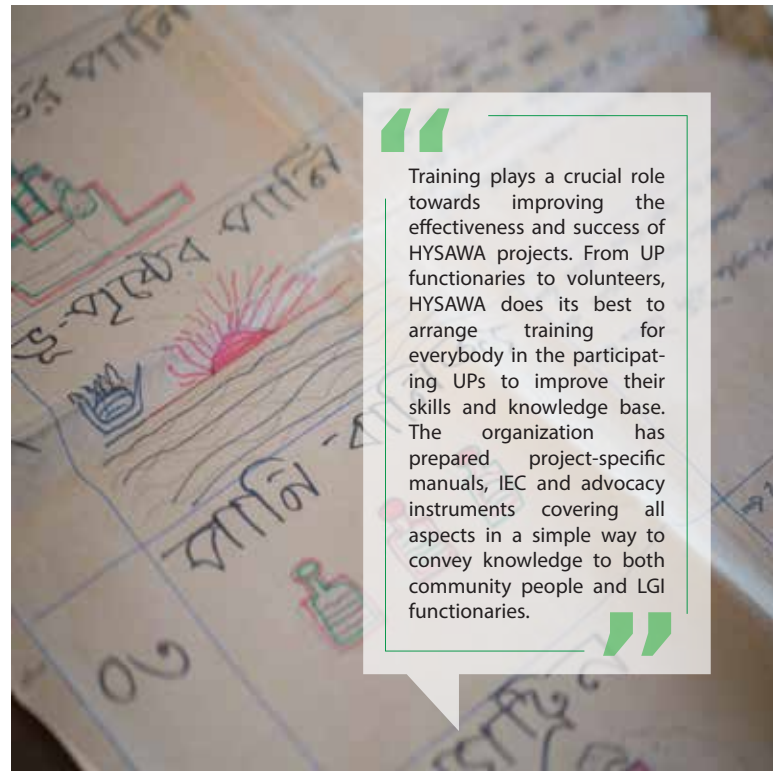 পানি
ভূ-পৃষ্ঠের পানি
Training plays a crucial role
towards improving the
effectiveness and success of
HYSAWA projects. From UP
functionaries to volunteers,
HYSAWA does its best to
arrange training for
everybody in the participat-
ing UPs to improve their
skills and knowledge base.
The organization has
prepared project-specific
manuals, IEC and advocacy
instruments covering all
aspects in a simple way to
convey knowledge to both
community people and LGI
functionaries.
পানি